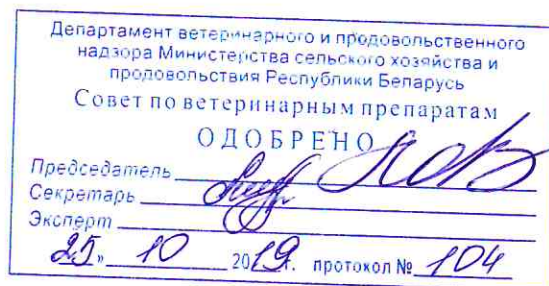 Департамент ветеринарного и продовольственного
надзора Министерства сельского хозяйства и
продовольствия Республики Беларусь
Совет по ветеринарным препаратам
ОДОБРЕНО
Председатель
Секретарь
Эксперт
25» 10 2019г. протокол № 104